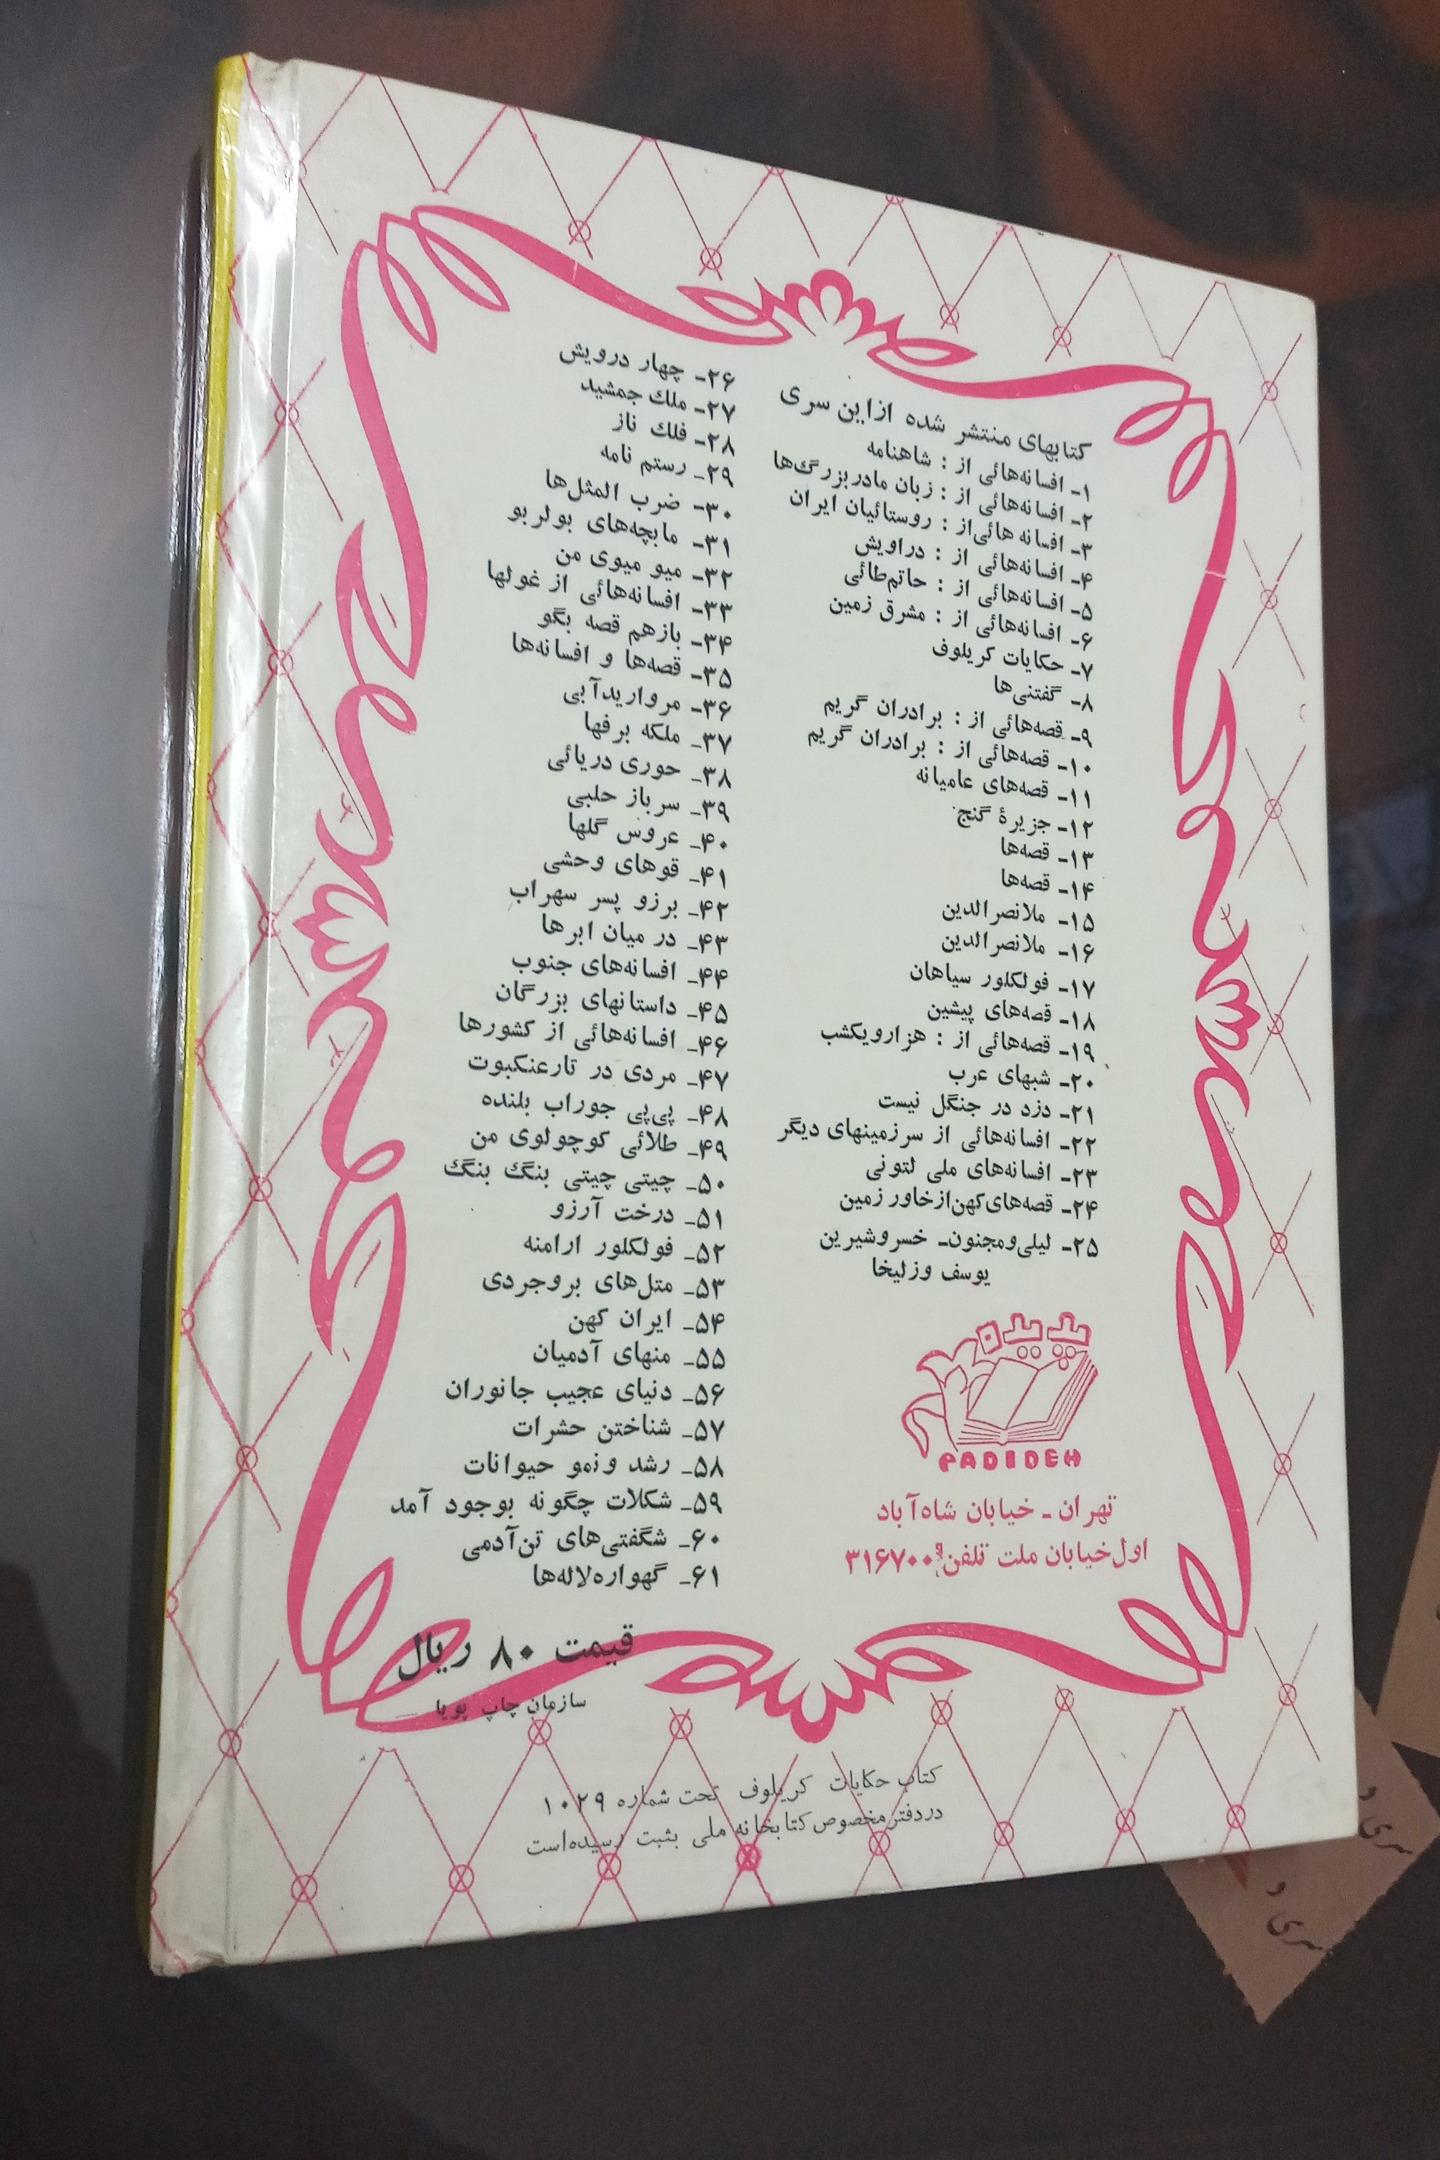 کتابهای منتشر شده ازاین سری
۱ـ افسانه‌هائی از : شاهنامه
۲ـ افسانه‌هائی از : زبان مادربزرگ‌ها
۳ـ افسانه هائی‌از : روستائیان ایران
۴ـ افسانه‌هائی از : دراویش
۵ـ افسانه‌هائی از : حاتم‌طائی
۶ـ افسانه‌هائی از : مشرق زمین
۷ـ حکایات کریلوف
۸ـ گفتنی‌ها
۹ـ قصه‌هائی از : برادران گریم
۱۰ـ قصه‌هائی از : برادران گریم
۱۱ـ قصه‌های عامیانه
۱۲ـ جزیرهٔ گنج
۱۳ـ قصه‌ها
۱۴ـ قصه‌ها
۱۵ـ ملانصرالدین
۱۶ـ ملانصرالدین
۱۷ـ فولکلور سیاهان
۱۸ـ قصه‌های پیشین
۱۹ـ قصه‌هائی از : هزارویکشب
۲۰ـ شبهای عرب
۲۱ـ دزد در جنگل نیست
۲۲ـ افسانه‌هائی از سرزمینهای دیگر
۲۳ـ افسانه‌های ملی لتونی
۲۴ـ قصه‌های‌کهن‌ازخاور زمین
۲۵ـ لیلی‌ومجنون‌ـ خسروشیرین
یوسف وزلیخا
پدیده
PADIDEH
تهران ـ خیابان شاه‌آباد
اول‌خیابان ملت تلفن ۳۱۶۷۰۰۹
۲۶ـ چهار درویش
۲۷ـ ملك جمشید
۲۸ـ فلك ناز
۲۹ـ رستم نامه
۳۰ـ ضرب المثل‌ها
۳۱ـ مابچه‌های بولربو
۳۲ـ میو میوی من
۳۳ـ افسانه‌هائی از غولها
۳۴ـ بازهم قصه بگو
۳۵ـ قصه‌ها و افسانه‌ها
۳۶ـ مرواریدآبی
۳۷ـ ملکه برفها
۳۸ـ حوری دریائی
۳۹ـ سرباز حلبی
۴۰ـ عروس گلها
۴۱ـ قوهای وحشی
۴۲ـ برزو پسر سهراب
۴۳ـ در میان ابرها
۴۴ـ افسانه‌های جنوب
۴۵ـ داستانهای بزرگان
۴۶ـ افسانه‌هائی از کشورها
۴۷ـ مردی در تارعنکبوت
۴۸ـ پی‌پی جوراب بلنده
۴۹ـ طلائی کوچولوی من
۵۰ـ چیتی چیتی بنگ بنگ
۵۱ـ درخت آرزو
۵۲ـ فولکلور ارامنه
۵۳ـ متل‌های بروجردی
۵۴ـ ایران کهن
۵۵ـ منهای آدمیان
۵۶ـ دنیای عجیب جانوران
۵۷ـ شناختن حشرات
۵۸ـ رشد ونمو حیوانات
۵۹ـ شکلات چگونه بوجود آمد
۶۰ـ شگفتی‌های تن‌آدمی
۶۱ـ گهواره‌لاله‌ها
قیمت ۸۰ ریال
سازمان چاپ پویا
کتاب حکایات کریلوف تحت شماره ۱۰۲۹
دردفتر مخصوص کتابخانه ملی بثبت رسیده‌است
سری و
سری و